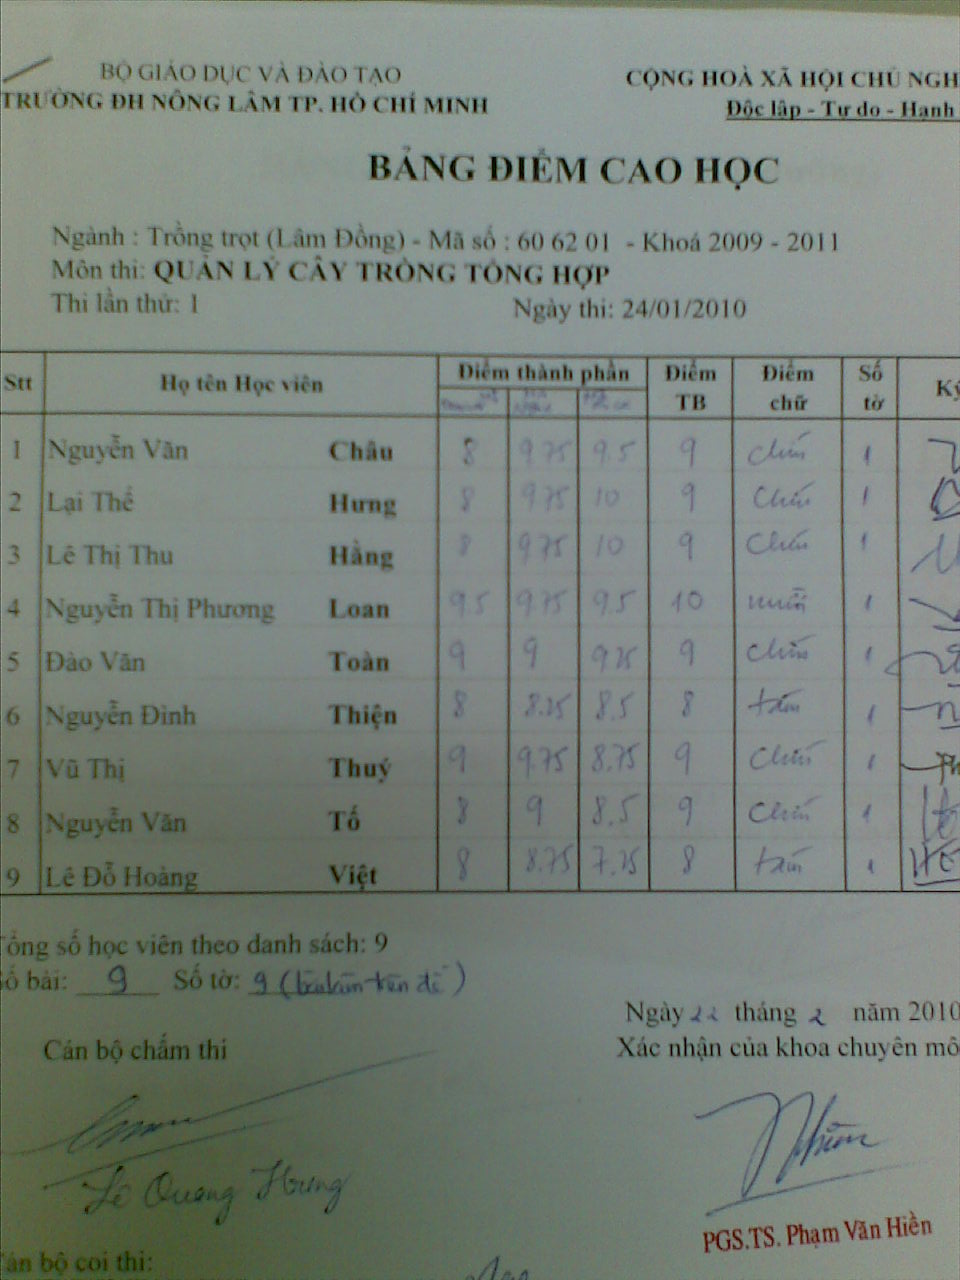 BỘ GIÁO DỤC VÀ ĐÀO TẠO
CỘNG HOÀ XÃ HỘI CHỦ NGH
TRƯỜNG ĐH NÔNG LÂM TP. HỒ CHÍ MINH
Độc lập - Tự do - Hạnh
BẢNG ĐIỂM CAO HỌC
Ngành : Trồng trọt (Lâm Đồng) - Mã số : 60 62 01 - Khoá 2009 - 2011
Môn thi: QUẢN LÝ CÂY TRỒNG TỔNG HỢP
Thi lần thứ: 1 Ngày thi: 24/01/2010
Stt Họ tên Học viên Điểm thành phần Điểm TB Điểm chữ Số tờ Ký
1 Nguyễn Văn Châu 8 9.75 9.5 9 chín 1
2 Lại Thế Hưng 8 9.75 10 9 chín 1
3 Lê Thị Thu Hằng 8 9.75 10 9 chín 1
4 Nguyễn Thị Phương Loan 9.5 9.75 9.5 10 mười 1
5 Đào Văn Toàn 9 9 9.25 9 chín 1
6 Nguyễn Đình Thiện 8 8.25 8.5 8 tám 1
7 Vũ Thị Thuý 9 9.75 8.75 9 chín 1
8 Nguyễn Văn Tố 8 9 8.5 9 chín 1
9 Lê Đỗ Hoàng Việt 8 8.75 7.25 8 tám 1
Tổng số học viên theo danh sách: 9
Số bài: 9 Số tờ: 9
Ngày 22 tháng 2 năm 2010
Cán bộ chấm thi
Xác nhận của khoa chuyên mô
Lê Quang Hưng
PGS.TS. Phạm Văn Hiền
Cán bộ coi thi: